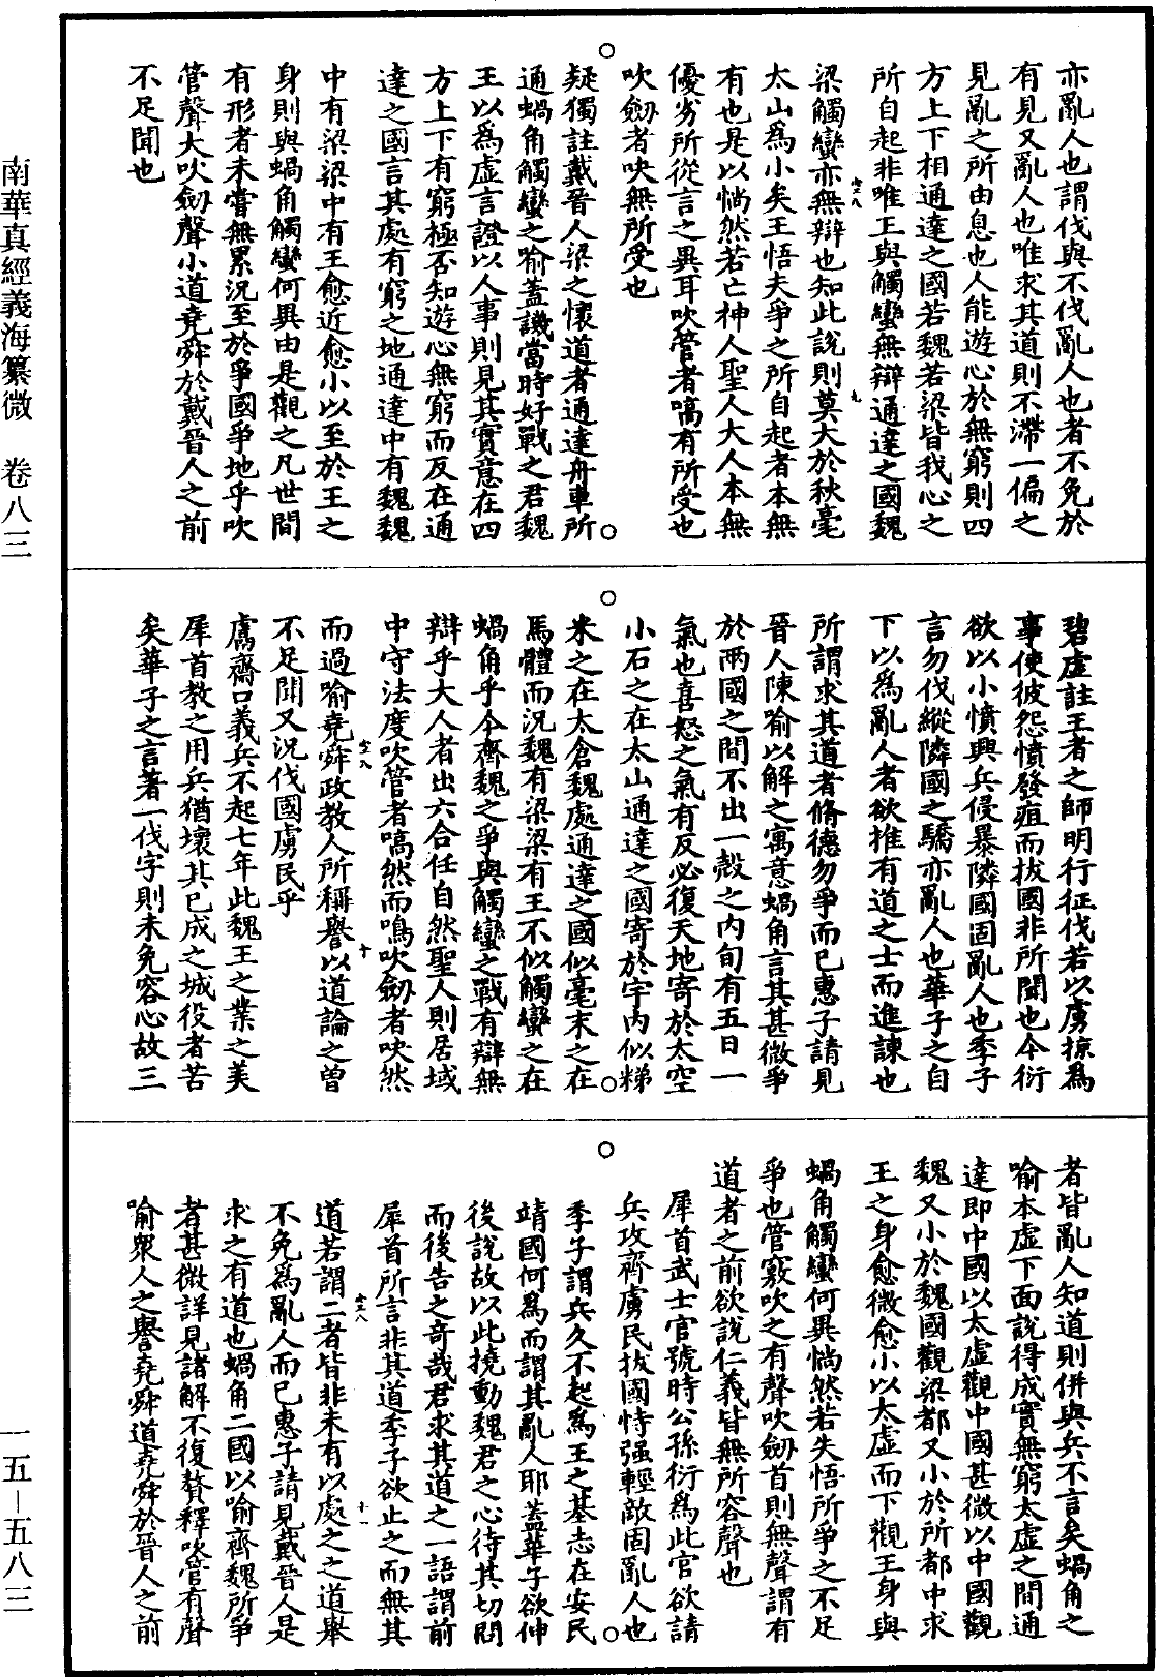 亦亂人也謂伐與不伐亂人也者不免於
有見又亂人也唯求其道則不滯一偏之
見亂之所由息也人能遊心於無窮則四
方上下相通達之國若魏若梁皆我心之
所自起非唯王與觸蠻無辯通達之國魏
梁觸蠻亦無辯也知此說則莫大於秋毫
太山為小矣王悟夫爭之所自起者本無
有也是以惝然若亡神人聖人大人本無
優劣所從言之異耳吹管者嗃有所受也
吹劒者吷無所受也
疑獨註戴晉人梁之懷道者通達舟車所
通蝸角觸蠻之喻蓋譏當時好戰之君魏
王以為虛言證以人事則見其實意在四
方上下有窮極否知遊心無窮而反在通
達之國言其處有窮之地通達中有魏魏
中有梁梁中有王愈近愈小以至於王之
身則與蝸角觸蠻何異由是觀之凡世間
有形者未嘗無累況至於爭國爭地乎吹
管聲大吹劒聲小道堯舜於戴晉人之前
不足聞也
碧虛註王者之師明行征伐若以虜掠為
事使彼怨憤發疽而拔國非所聞也今衍
欲以小憤興兵侵暴隣國固亂人也季子
言勿伐縱隣國之驕亦亂人也華子之自
下以為亂人者欲推有道之士而進諫也
所謂求其道者脩德勿爭而已惠子請見
晉人陳喻以解之寓意蝸角言其甚微爭
於兩國之間不出一殼之內旬有五日一
氣也喜怒之氣有反必復天地寄於太空
小石之在太山通達之國寄於宇內似稊
米之在太倉魏處通達之國似毫末之在
馬體而況魏有梁梁有王不似觸蠻之在
蝸角乎今齊魏之爭與觸蠻之戰有辯無
辯乎大人者出六合任自然聖人則居域
中守法度吹管者嗃然而鳴吹劒者吷然
而過喻堯舜政教人所稱譽以道論之曾
不足聞又況伐國虜民乎
鬳齋口義兵不起七年此魏王之業之美
犀首教之用兵猶壞其已成之城役者苦
矣華子之言著一伐字則未免容心故三
者皆亂人知道則併與兵不言矣蝸角之
喻本虛下面說得成實無窮太虛之間通
達即中國以太虛觀中國甚微以中國觀
魏又小於魏國觀梁都又小於所都中求
王之身愈微愈小以太虛而下觀王身與
蝸角觸蠻何異惝然若失悟所爭之不足
爭也管竅吹之有聲吹劒首則無聲謂有
道者之前欲說仁義皆無所容聲也
犀首武士官號時公孫衍為此官欲請
兵攻齊虜民拔國恃强輕敵固亂人也
季子謂兵久不起為王之基志在安民
靖國何為而謂其亂人耶蓋華子欲伸
後說故以此撓動魏君之心待其切問
而後告之奇哉君求其道之一語謂前
犀首所言非其道季子欲止之而無其
道若謂二者皆非未有以處之之道舉
不免為亂人而已惠子請見戴晉人是
求之有道也蝸角二國以喻齊魏所爭
者甚微詳見諸解不復贅釋吹管有聲
喻衆人之譽堯舜道堯舜於晉人之前
南華真經義海纂微　卷八三
一五－五八三